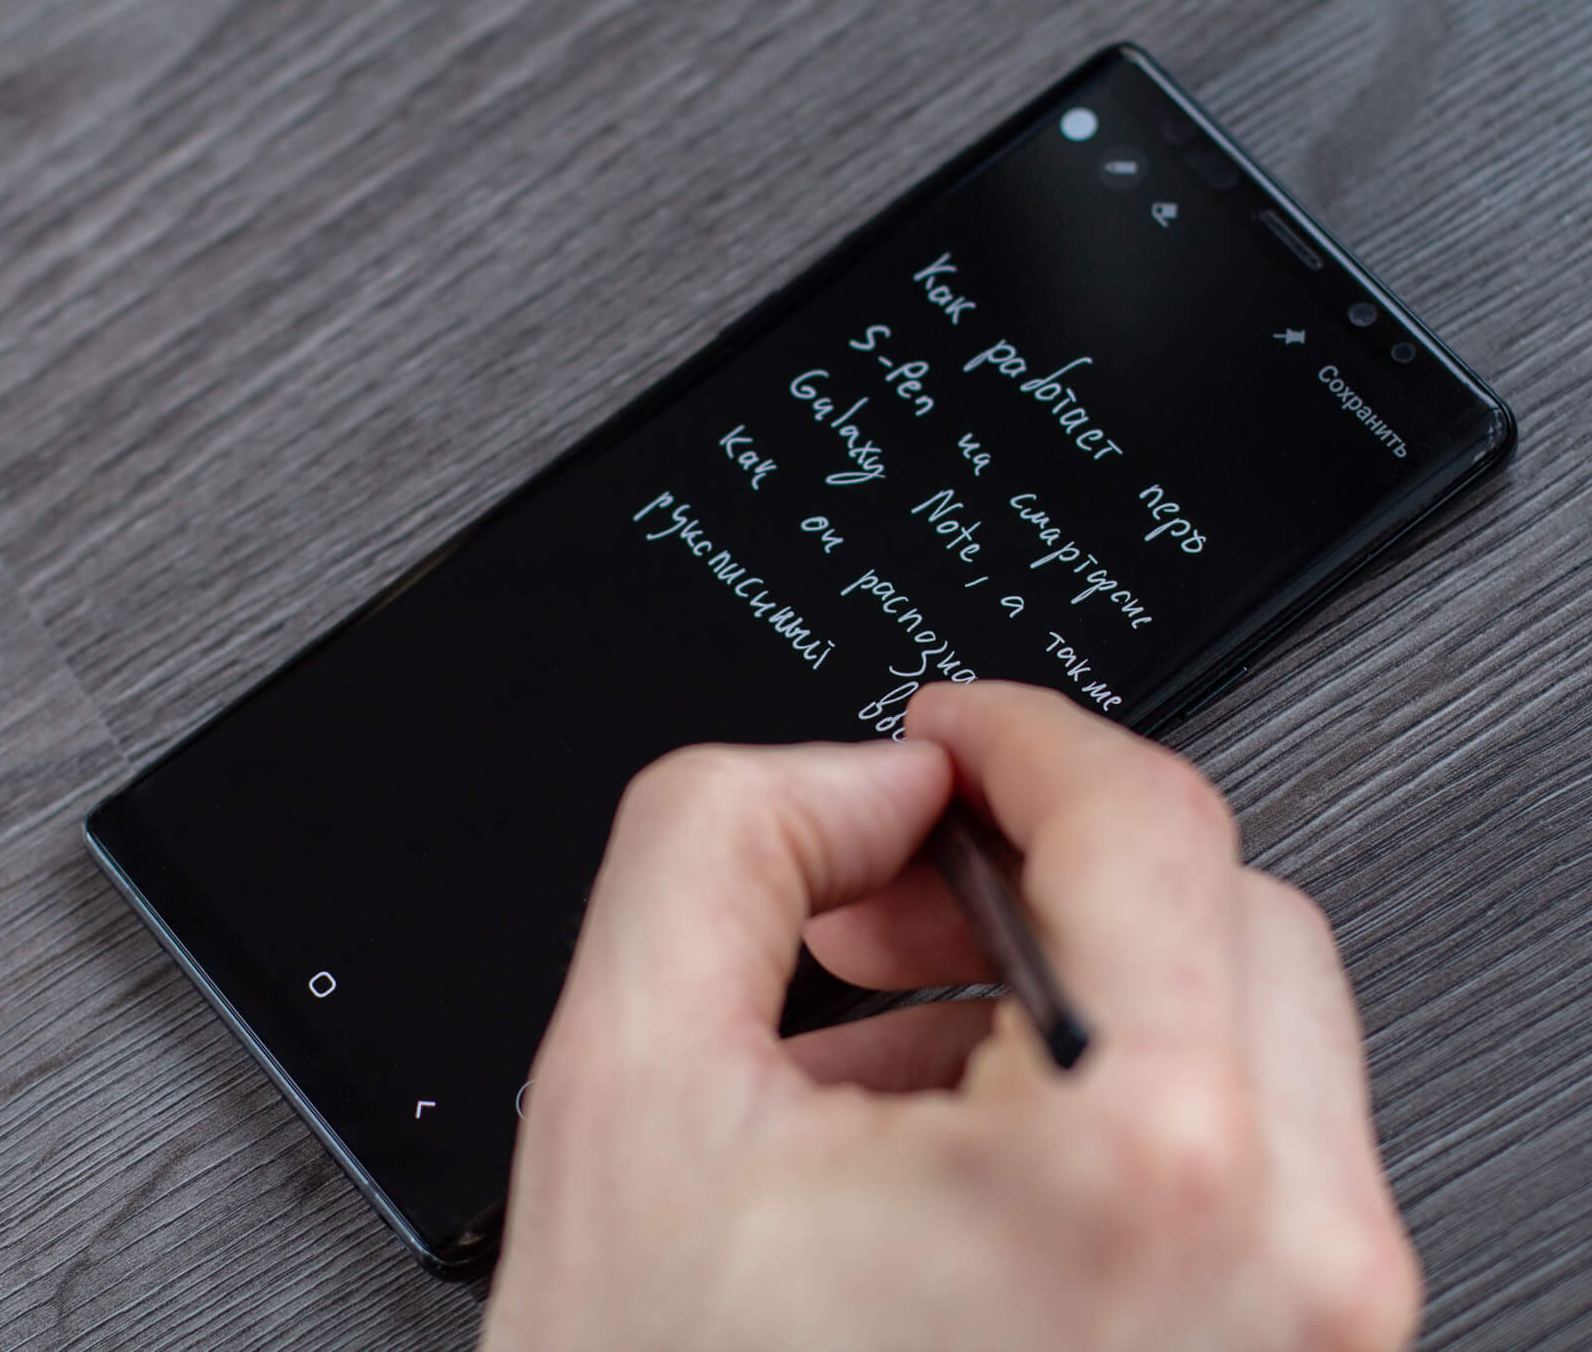 Сохранить
Как работает перо
S-Pen на смартфоне
Galaxy Note, а также
как он распозна
рукописный вво